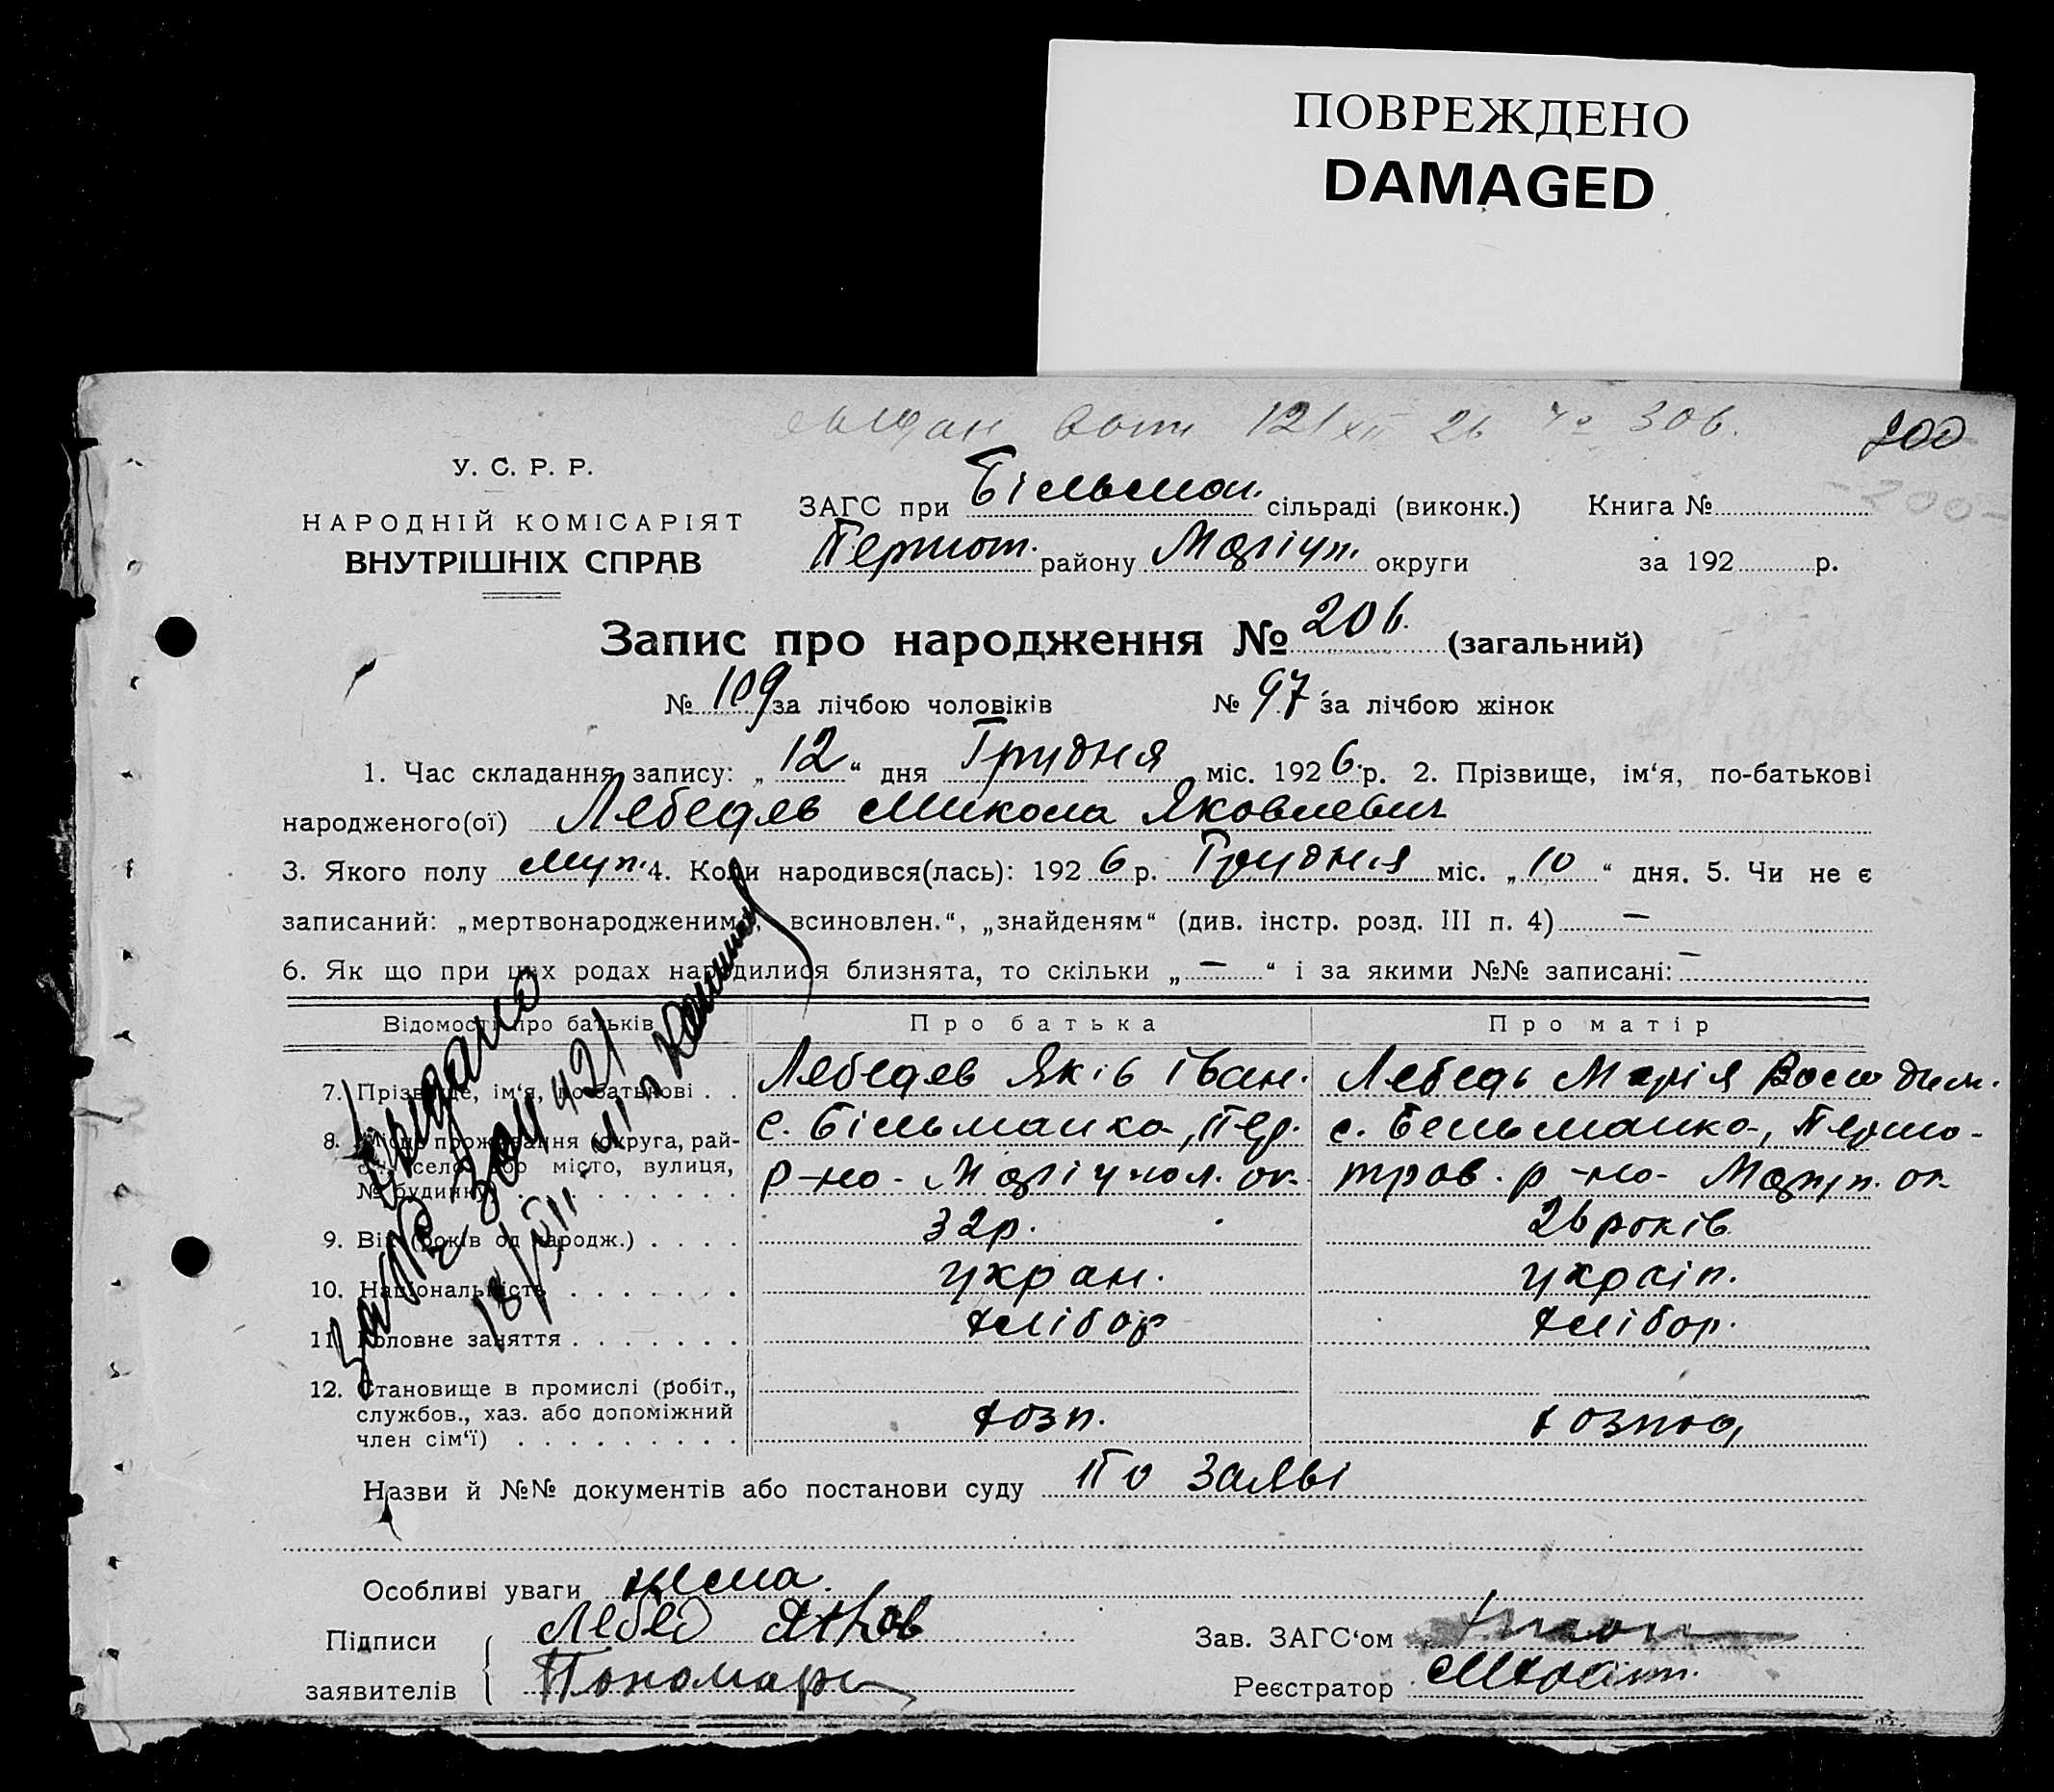 ПОВРЕЖДЕНО
DAMAGED
200
У. С. Р. Р.
НАРОДНІЙ КОМІСАРІЯТ
ВНУТРІШНІХ СПРАВ
ЗАГС при Більман. сільраді (виконк.) Книга №
району Маріуп. округи за 192 р.
Запис про народження № 206. (загальний)
№ 109 за лічбою чоловіків № 97 за лічбою жінок
1. Час складання запису: „ 12 “ дня Грудня міс. 1926 р. 2. Прізвище, ім‘я, по-батькові
народженого(ої) Лебедев Микола Яковлевич
3. Якого полу 4. Коли народився(лась): 1926 р. Грудня міс. „ 10 “ дня. 5. Чи не є
записаний: „мертвонародженим“, всиновлен.“, „знайденям“ (див. інстр. розд. III п. 4) —
6. Як що при цих родах народилися близнята, то скільки „ — “ і за якими №№ записані: —
Відомості про батьків Про батька Про матір
7. Прізвище, ім‘я, по-батькові . . Лебедев Яків Іван. Лебедь Марія
8. Місце проживання (округа, рай- с. Більманка, Пер. с. Бельманка, Першо-
он, село або місто, вулиця, р-но- Маріупол. ок. тров. р-но- Маріуп. ок.
№ будинку) . . . . . . . . .
9. Вік (років од народж.) . . . . 32 р. 26 років
10. Національність . . . . . . . укран. україн.
11. Головне заняття . . . . . . . хлібор хлібор.
12. Становище в промислі (робіт.,
службов., хаз. або допоміжний хозп. хозпод,
член сім‘ї) . . . . . . . . .
Назви й №№ документів або постанови суду По заяві
Особливі уваги нема.
Підписи Лебед Яков Зав. ЗАГС‘ом
заявителів Реєстратор